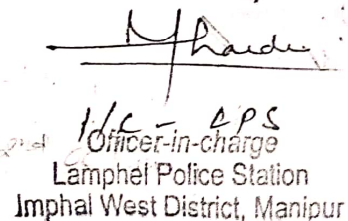 I/C - LPS
Officer-in-charge
Lamphel Police Station
Imphal West District, Manipur